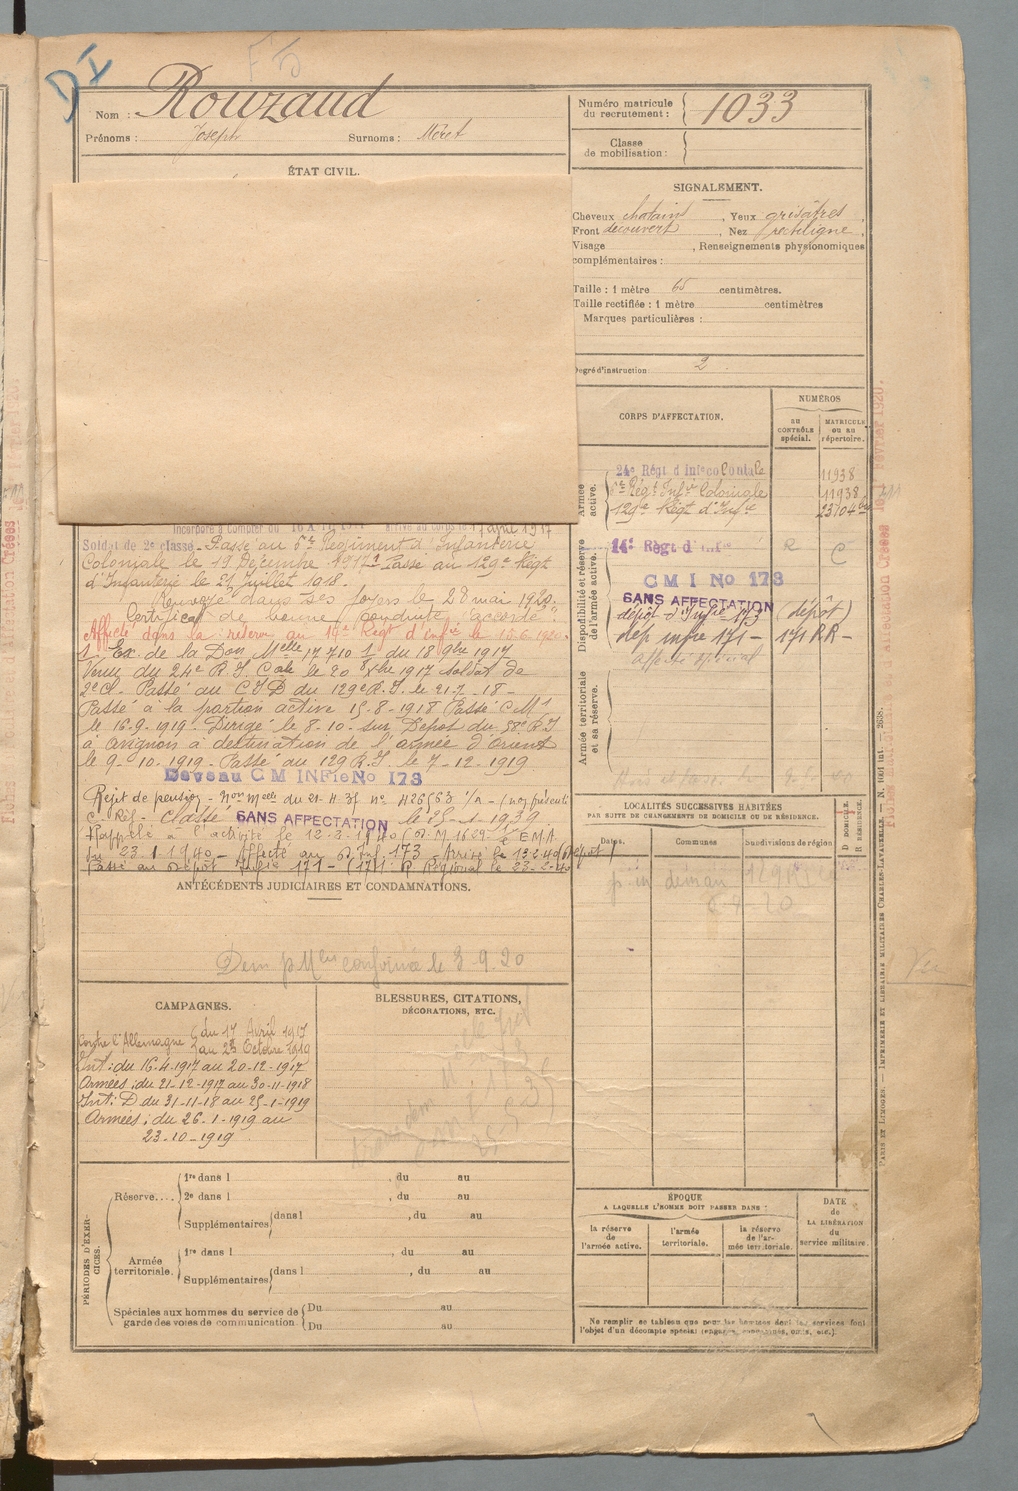 DI
Nom : Rouzaud
Prénoms : Joseph Surnoms : Méret
Numéro matricule du recrutement : 1033
Classe de mobilisation :
ÉTAT CIVIL.
SIGNALEMENT.
Cheveux chatain , Yeux grisâtres ,
Front découvert , Nez rectiligne ,
Visage , Renseignements physionomiques
complémentaires :
Taille : 1 mètre 65 centimètres.
Taille rectifiée : 1 mètre centimètres
Marques particulières :
Degré d'instruction : 2
CORPS D'AFFECTATION.
NUMÉROS
au contrôle spécial.
MATRICULE ou au répertoire.
Armée active.
24e Régt d'Infie Coloniale 11938
6e Régt Infie Coloniale 11938
129e Régt d'Infie 23704
Disponibilité et réserve de l'armée active.
14e Régt d'Infie R C
CMI No 173
SANS AFFECTATION
dépôt d'Infie 173 (dépôt)
dép infie 171 - 171 RR -
Affecté spécial
Armée territoriale et sa réserve.
Incorporé à compter du 16 Avril 1917 Arrivé au corps le 17 avril 1917
Soldat de 2e classe - Passé au 6e Régiment d'Infanterie
Coloniale le 19 Décembre 1917 Passé au 129e Régt
d'Infanterie le 21 Juillet 1918.
Renvoyé dans ses foyers le 28 mai 1920.
Certificat de bonne conduite "accordé"
Affecté dans la réserve au 14e Régt d'Infie le 15-6-1920.
Ex. de la Don Melle 17 710 1 du 18 9bre 1917
Venu du 24e R.I. Cale le 20 Xbre 1917 soldat de
2e Cl - Passé au C I D du 129e R.I. le 21-7-18 -
Passé à la portion active 15-8-1918 Passé CM1
le 16-9-1919 - Dirigé le 8-10 - sur Dépôt du 58e R I
à Avignon à destination de l'armée d'Orient
le 9-10-1919 - Passé au 129 R.I. le 7-12-1919
Devenu CM INFie No 173
Rejet de pension - Non Melle du 21-4-37 no 426563
C. Rés - classé SANS AFFECTATION le 25-1-1939
Rappelé à l'activité le 12-2-1940 (D.M. 1629 E.M.A
du 23-1-1940 - Affecté au D Inf. 173 - Arrivé le 13-2-40 (Dépôt)
Passé au Dépôt Infie 171 - (171 R Régional le 23-2-40
ANTÉCÉDENTS JUDICIAIRES ET CONDAMNATIONS.
Dem p Mlle conforme le 3-9-20
LOCALITÉS SUCCESSIVES HABITÉES
PAR SUITE DE CHANGEMENTS DE DOMICILE OU DE RÉSIDENCE.
Dates. Communes Subdivisions de région D DOMICILE. R RÉSIDENCE.
CAMPAGNES.
Contre l'Allemagne du 17 Avril 1917
au 23 Octobre 1919
Int : du 16-4-1917 au 20-12-1917
Armées : du 21-12-1917 au 30-11-1918
Int : D du 31-11-18 au 25-1-1919
Armées : du 26-1-1919 au
23-10-1919
BLESSURES, CITATIONS,
DÉCORATIONS, ETC.
PÉRIODES D'EXERCICES.
Réserve.... 1re dans l , du au
2e dans l , du au
Supplémentaires dans l , du au
Armée territoriale. 1re dans l , du au
Supplémentaires dans l , du au
Spéciales aux hommes du service de garde des voies de communication. Du au
Du au
ÉPOQUE
A LAQUELLE L'HOMME DOIT PASSER DANS :
la réserve de l'armée active.
l'armée territoriale.
la réserve de l'armée territoriale.
DATE de LA LIBÉRATION du service militaire.
Ne remplir ce tableau que pour les hommes dont les services font
l'objet d'un décompte spécial (engagés, commissionnés, omis, etc.).
PARIS ET LIMOGES. — IMPRIMERIE ET LIBRAIRIE MILITAIRES CHARLES-LAVAUZELLE